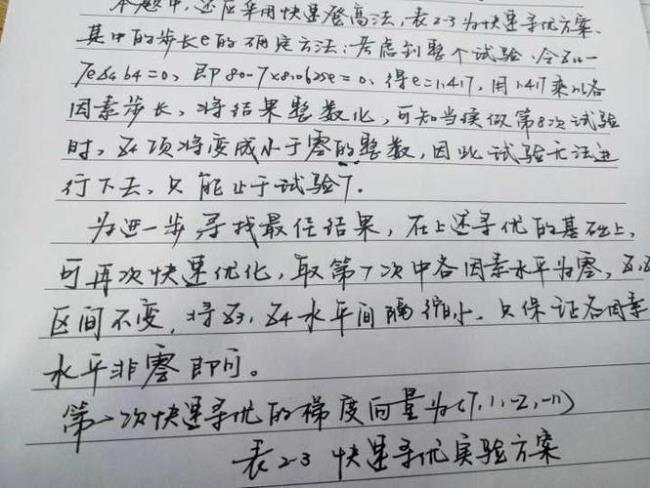 本题中,还应采用快速登高法,表2-3为快速寻优方案.
其中的步长e的确定方法:考虑到整个试验,令
7eδ4b4=0,即80-7×8.0625e=0,得e=1.417,用1.417乘以各
因素步长,将结果整数化,可知当模做第8次试验
时,Z4项将变成小于零的整数,因此试验无法进
行下去,只能止于试验7.
为进一步寻找最佳结果,在上述寻优的基础上,
可再次快速优化,取第7次中各因素水平为零,
区间不变,将Z3,Z4水平间隔缩小,只保证各因素
水平非零即可。
第一次快速寻优的梯度向量为(7,1,-2,-11)
表2-3 快速寻优实验方案